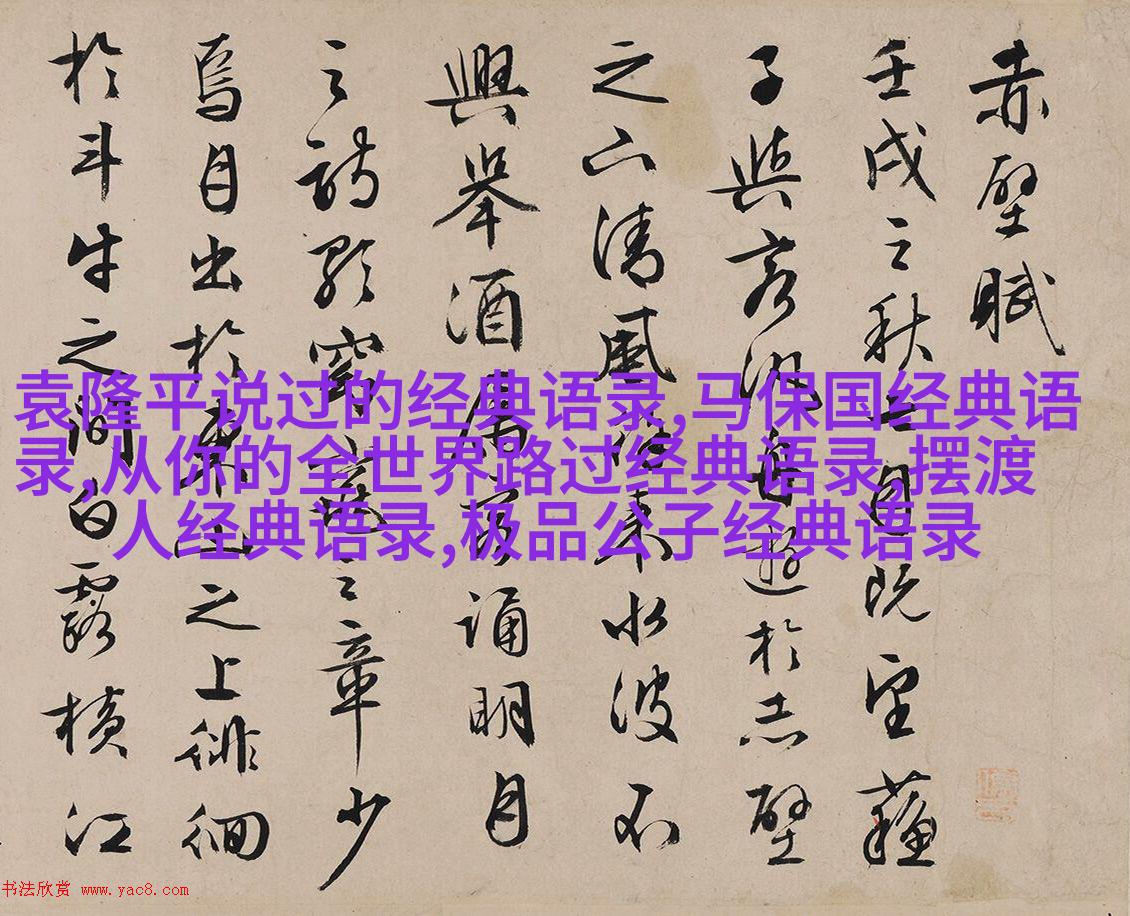 赤壁賦
壬戌之秋七月既望蘇
子與客泛舟遊於赤壁
之下清風徐来水波不
興舉酒屬客誦明月
之詩歌窈窕之章少
焉月出於東山之上徘徊
於斗牛之間白露横江
袁隆平说过的经典语录,马保国经典语
录,从你的全世界路过经典语录,摆渡
人经典语录,极品公子经典语录
书法欣赏 www.yac8.com